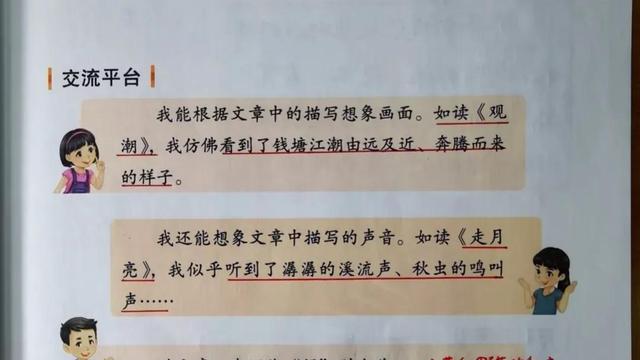 交流平台
我能根据文章中的描写想象画面。如读《观
潮》，我仿佛看到了钱塘江潮由远及近、奔腾而来
的样子。
我还能想象文章中描写的声音。如读《走月
亮》，我似乎听到了潺潺的溪流声、秋虫的鸣叫
声……